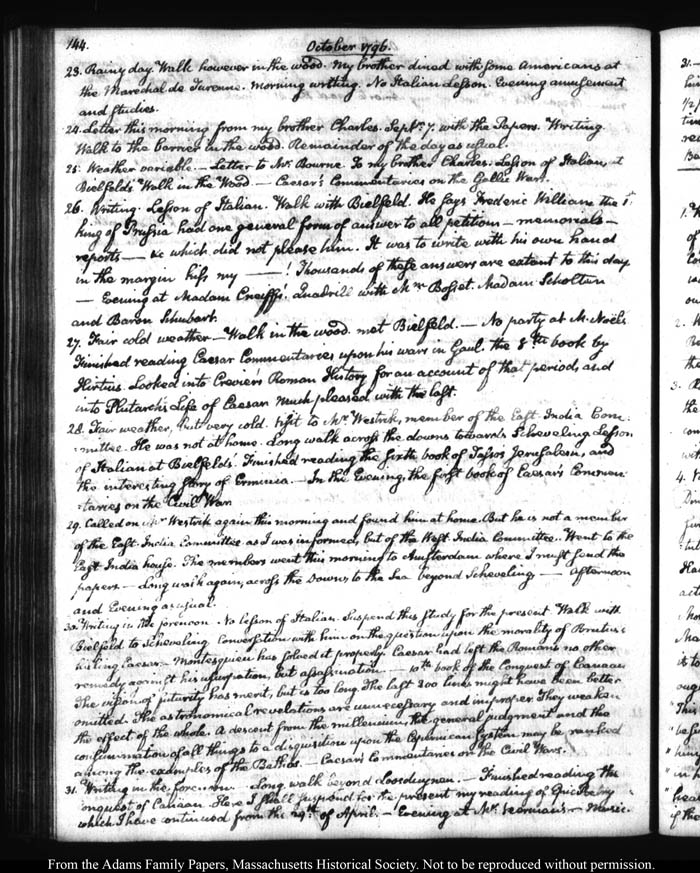 144.
October 1796.
23. Rainy day. Walk however in the wood. My brother dined with some Americans at
the Marechal de Turenne. Morning writing. No Italian Lesson. Evening amusement
and studies.
24. Letter this morning from my brother Charles. Septr. 7. with the Papers. Writing
Walk to the barrier in the wood. Remainder of the day as usual.
25. Weather variable. — Letter to Mr. Bourne. To my brother Charles. Lesson of Italian, at
Bielfelds. Walk in the Wood. — Caesar's Commentaries on the Gallic War.
26. Writing. Lesson of Italian. Walk with Bielfeld. He says Frederic William the 1st
king of Prussia had one general form of answer to all petitions — memorials —
reports — &c which did not please him. It was to write with his own hand
in the margin kiss my ——! Thousands of these answers are extent to this day
— Evening at Madam Quadrill with Mrs. Bosset. Madam Scholten
and Baron Schubart.
27. Fair cold weather — Walk in the wood. met Bielfeld. — No party at M. Noël's
Finished reading Caesar Commentaries upon his wars in Gaul. the 8th book by
Hirtius. Looked into Crevier's Roman History for an account of that period, and
into Plutarch's Life of Caesar. Much pleased with the last.
28. Fair weather, but very cold. Visit to Mr. Westrik, member of the East India Com-
mittee. He was not at home. Long walk across the downs towards Scheveling Lesson
of Italian at Bielfelds'. Finished reading the sixth book of Tasso's Jerusalem, and
the interesting story of Erminia. — In the Evening, the first book of Caesar's Commen-
taries on the Civil War
29. Called on Mr Westrik again this morning and found him at home. But he is not a member
of the East-India Committee as I was informed, but of the West India Committee. Went to the
East India house. The members went this morning to Amsterdam where I must send the
papers. — Long walk again, across the Downs to the Sea beyond Scheveling — Afternoon
and Evening as usual.
30. Writing in the forenoon. No lesson of Italian. Suspend this study for the present. Walk with
Bielfeld to Scheveling. Conversation with him on the question upon the morality of Brutus's
killing Caesar — Montesquieu has solved it properly. Caesar had left the Romans no other
remedy against his usurpation, but assassination — 10th book of the Conquest of Canaan
The vision of futurity has merit, but is too long. The last 300 lines might have been better
omitted. The astronomical revelations are unnecessary and improper. They weaken
the effect of the whole. A descent from the millennium, the general judgment and the
consummation of all things to a disquisition upon the Copernican System may be ranked
among the examples of the Bathos. — Caesar's Commentaries on the Civil Wars.
31. Writing in the forenoon. Long walk beyond Loosduynen. — Finished reading the
Conquest of Canaan. Here I shall suspend for the present my reading of Epic Poetry
which I have continued from the 29th of April. — Evening at Mr. — Music.
From the Adams Family Papers, Massachusetts Historical Society. Not to be reproduced without permission.